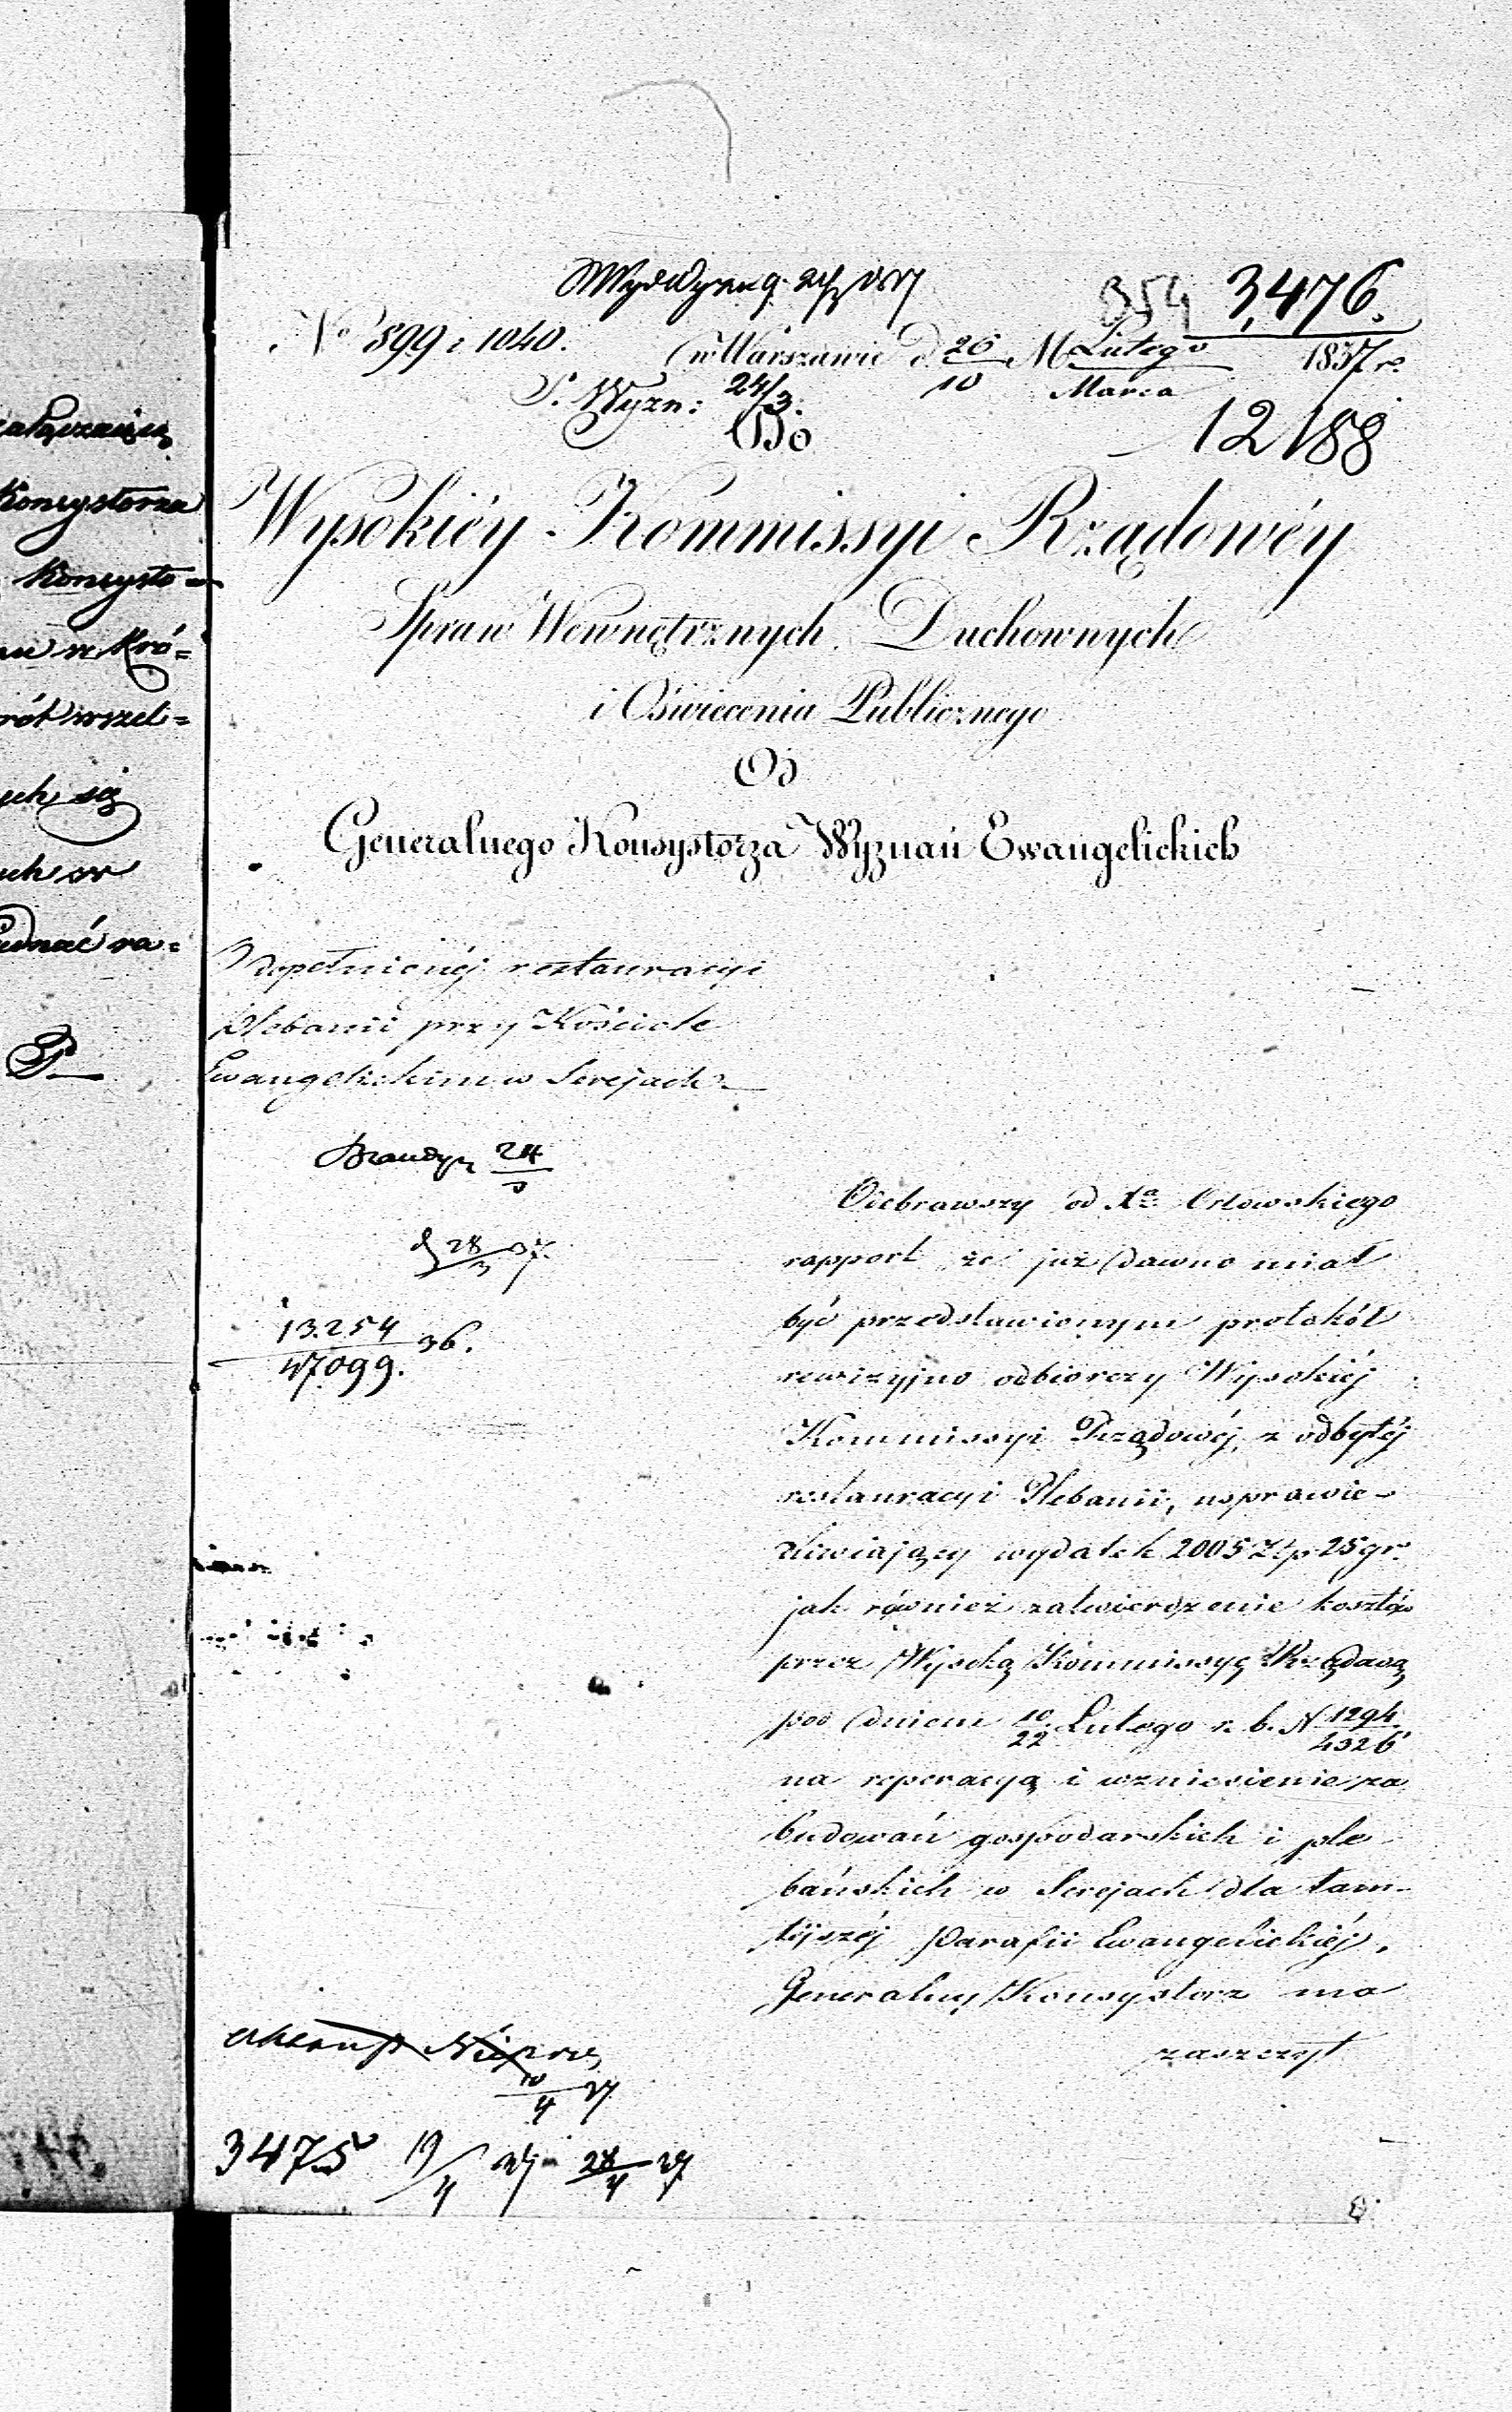 354 3,476.
No 899 i 1040. w Warszawie d. 26/10 M Lutego/Marca 1837 r.
S. Wyzn: 24/3.
12188
Do
Wysokiéy Kommissyi Rządowéy
Spraw Wewnętrznych, Duchownych
i Oświecenia Publicznego
Od
Generalnego Konsystorza Wyznań Ewangelickich
O dopełnionéj restauracyi
Plebanii przy Kościele
Ewangelickim w Serejach
24/3
28/3 37.
13.254/47.099. 36.
Odebrawszy od Xa Orłowskiego
rapport że już dawno miał
być przedstawionym protokół
rewizyjno odbiorczy Wysokiéj
Kommissyi Rządowéj, z odbytéj
restauracyi Plebanii, usprawie-
dliwiający wydatek 2005 Złp 25 gr.
jak również zatwierdzenie kosztów
przez Wysoką Kommissyę Rządową
pod dniem 10/22 Lutego r. b. N 1294/4326
na reperacyą i wzniesienie za
budowań gospodarskich i ple-
bańskich w Serejach dla tam-
téjszéj Parafii Ewangelickiéj,
Generalny Konsystorz ma
zaszczyt
10/4 37
3475 19/4 37 28/4 37